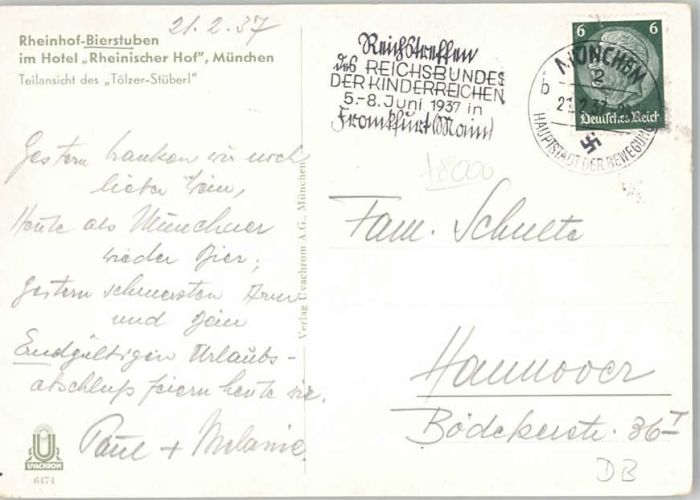 21.2.37
Rheinhof-Bierstuben
im Hotel „Rheinischer Hof", München
Teilansicht des „Tölzer-Stüberl"
Reichstreffen
des REICHSBUNDES
DER KINDERREICHEN
5.-8. Juni 1937 in
Frankfurt (Main)
MÜNCHEN
2
b
21.2.37
HAUPTSTADT DER BEWEGUNG
6 6
Deutsches Reich
18000
Gestern tranken wir noch
lieber Wein,
Heute als Münchner
wieder Bier;
Gestern schmerzten Arm
und Bein
Endgültigen Urlaubs-
abschluß feiern heute wir.
Paul + Melanie
Verlag Uvachrom A.G., München
UVACHROM
6474
Fam. Schulte
Hannover
Bödekerstr. 36 I
DB